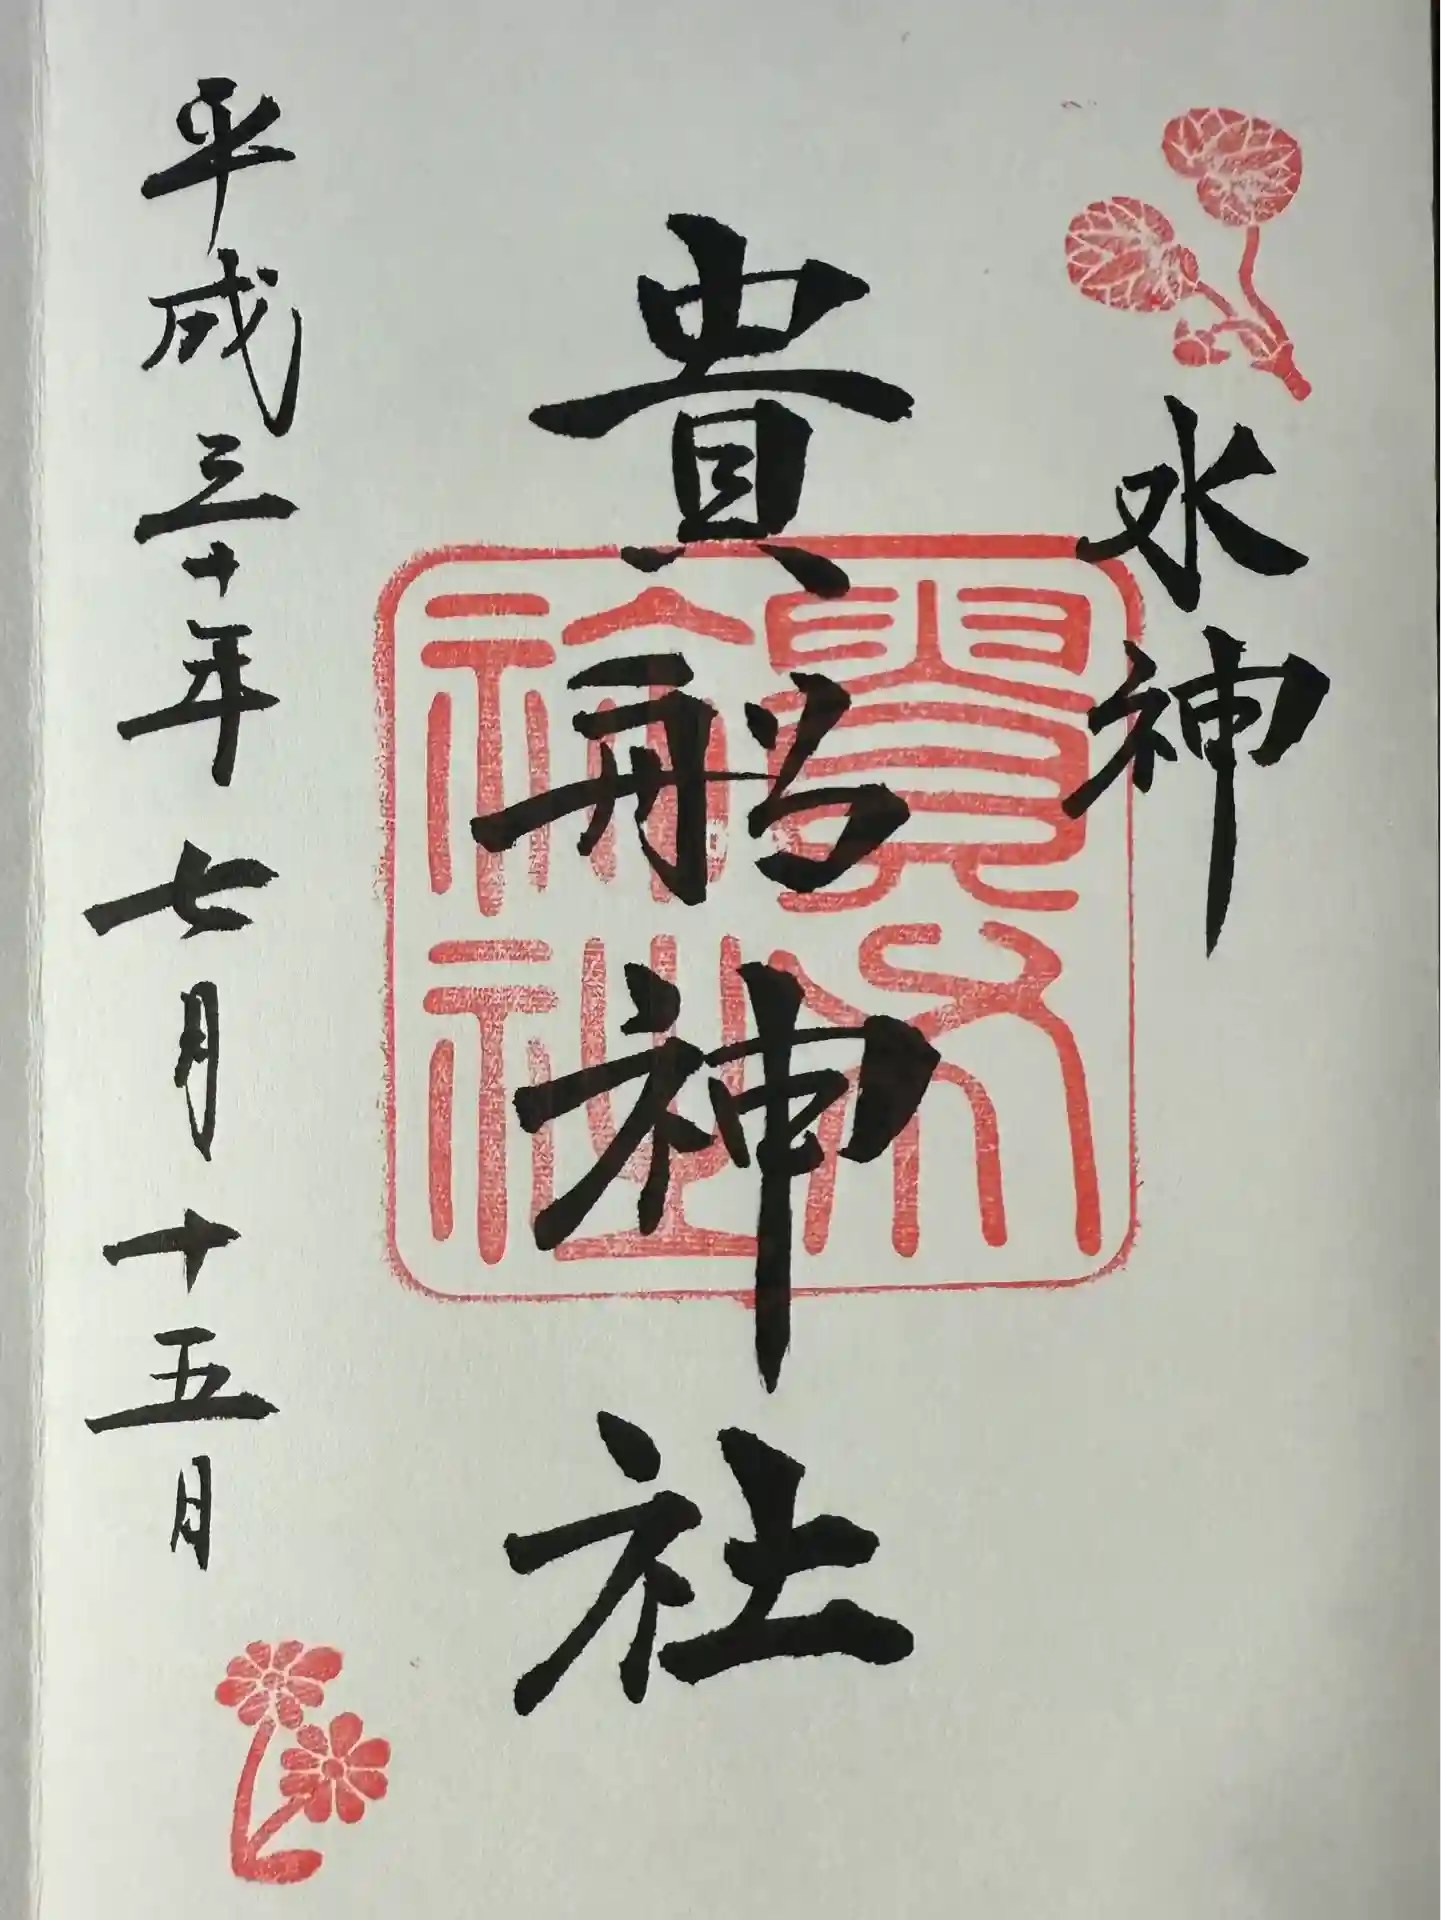 水神
貴船神社
貴船神社
平成三十年七月十五日